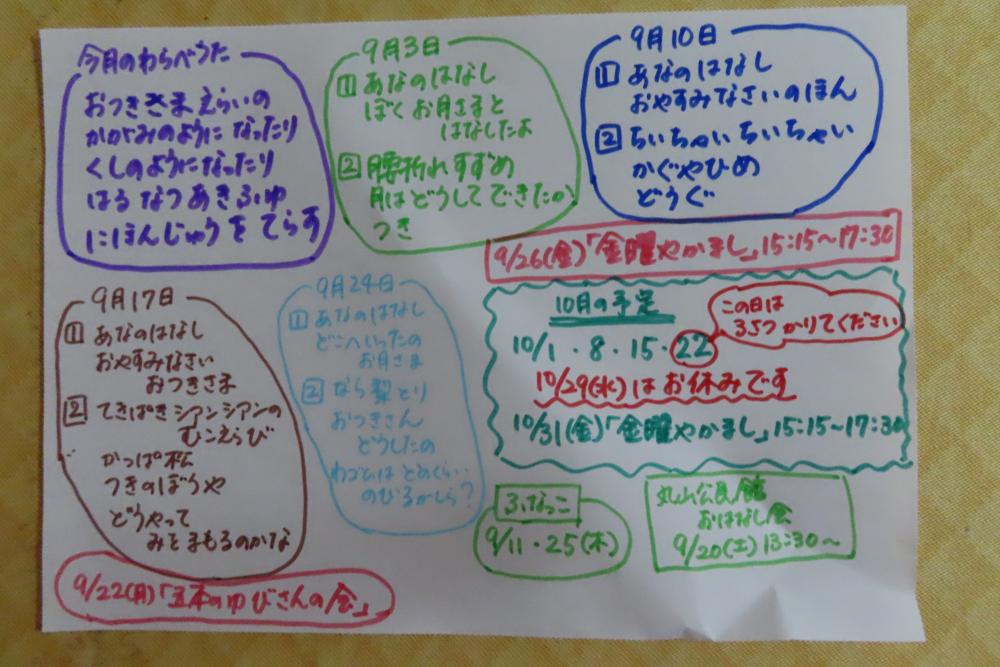 今月のわらべうた
おつきさまえらいの
かがみのようになったり
くしのようになったり
はるなつあきふゆ
にほんじゅうをてらす
9月3日
1 あなのはなし
ぼくお月さまと
はなしたよ
2 腰折れすずめ
月はどうしてできたか
つき
9月10日
1 あなのはなし
おやすみなさいのほん
2 ちいちゃいちいちゃい
かぐやひめ
どうぐ
9/26(金)「金曜やかまし」15:15~17:30
9月17日
1 あなのはなし
おやすみなさい
おつきさま
2 てきぱきシアンシアンの
むこえらび
かっぱ松
つきのぼうや
どうやって
みをまもるのかな
9月24日
1 あなのはなし
どこへいったの
お月さま
2 なら梨とり
おつきさん
どうしたの
わゴムはどのくらい
のびるかしら?
10月の予定
10/1・8・15・22
この日は
35つかりてください
10/29(水)はお休みです
10/31(金)「金曜やかまし」15:15~17:30
ふなっこ
9/11・25(木)
丸山公民館
おはなし会
9/20(土)13:30~
9/22(月)「五本のゆびさんの会」